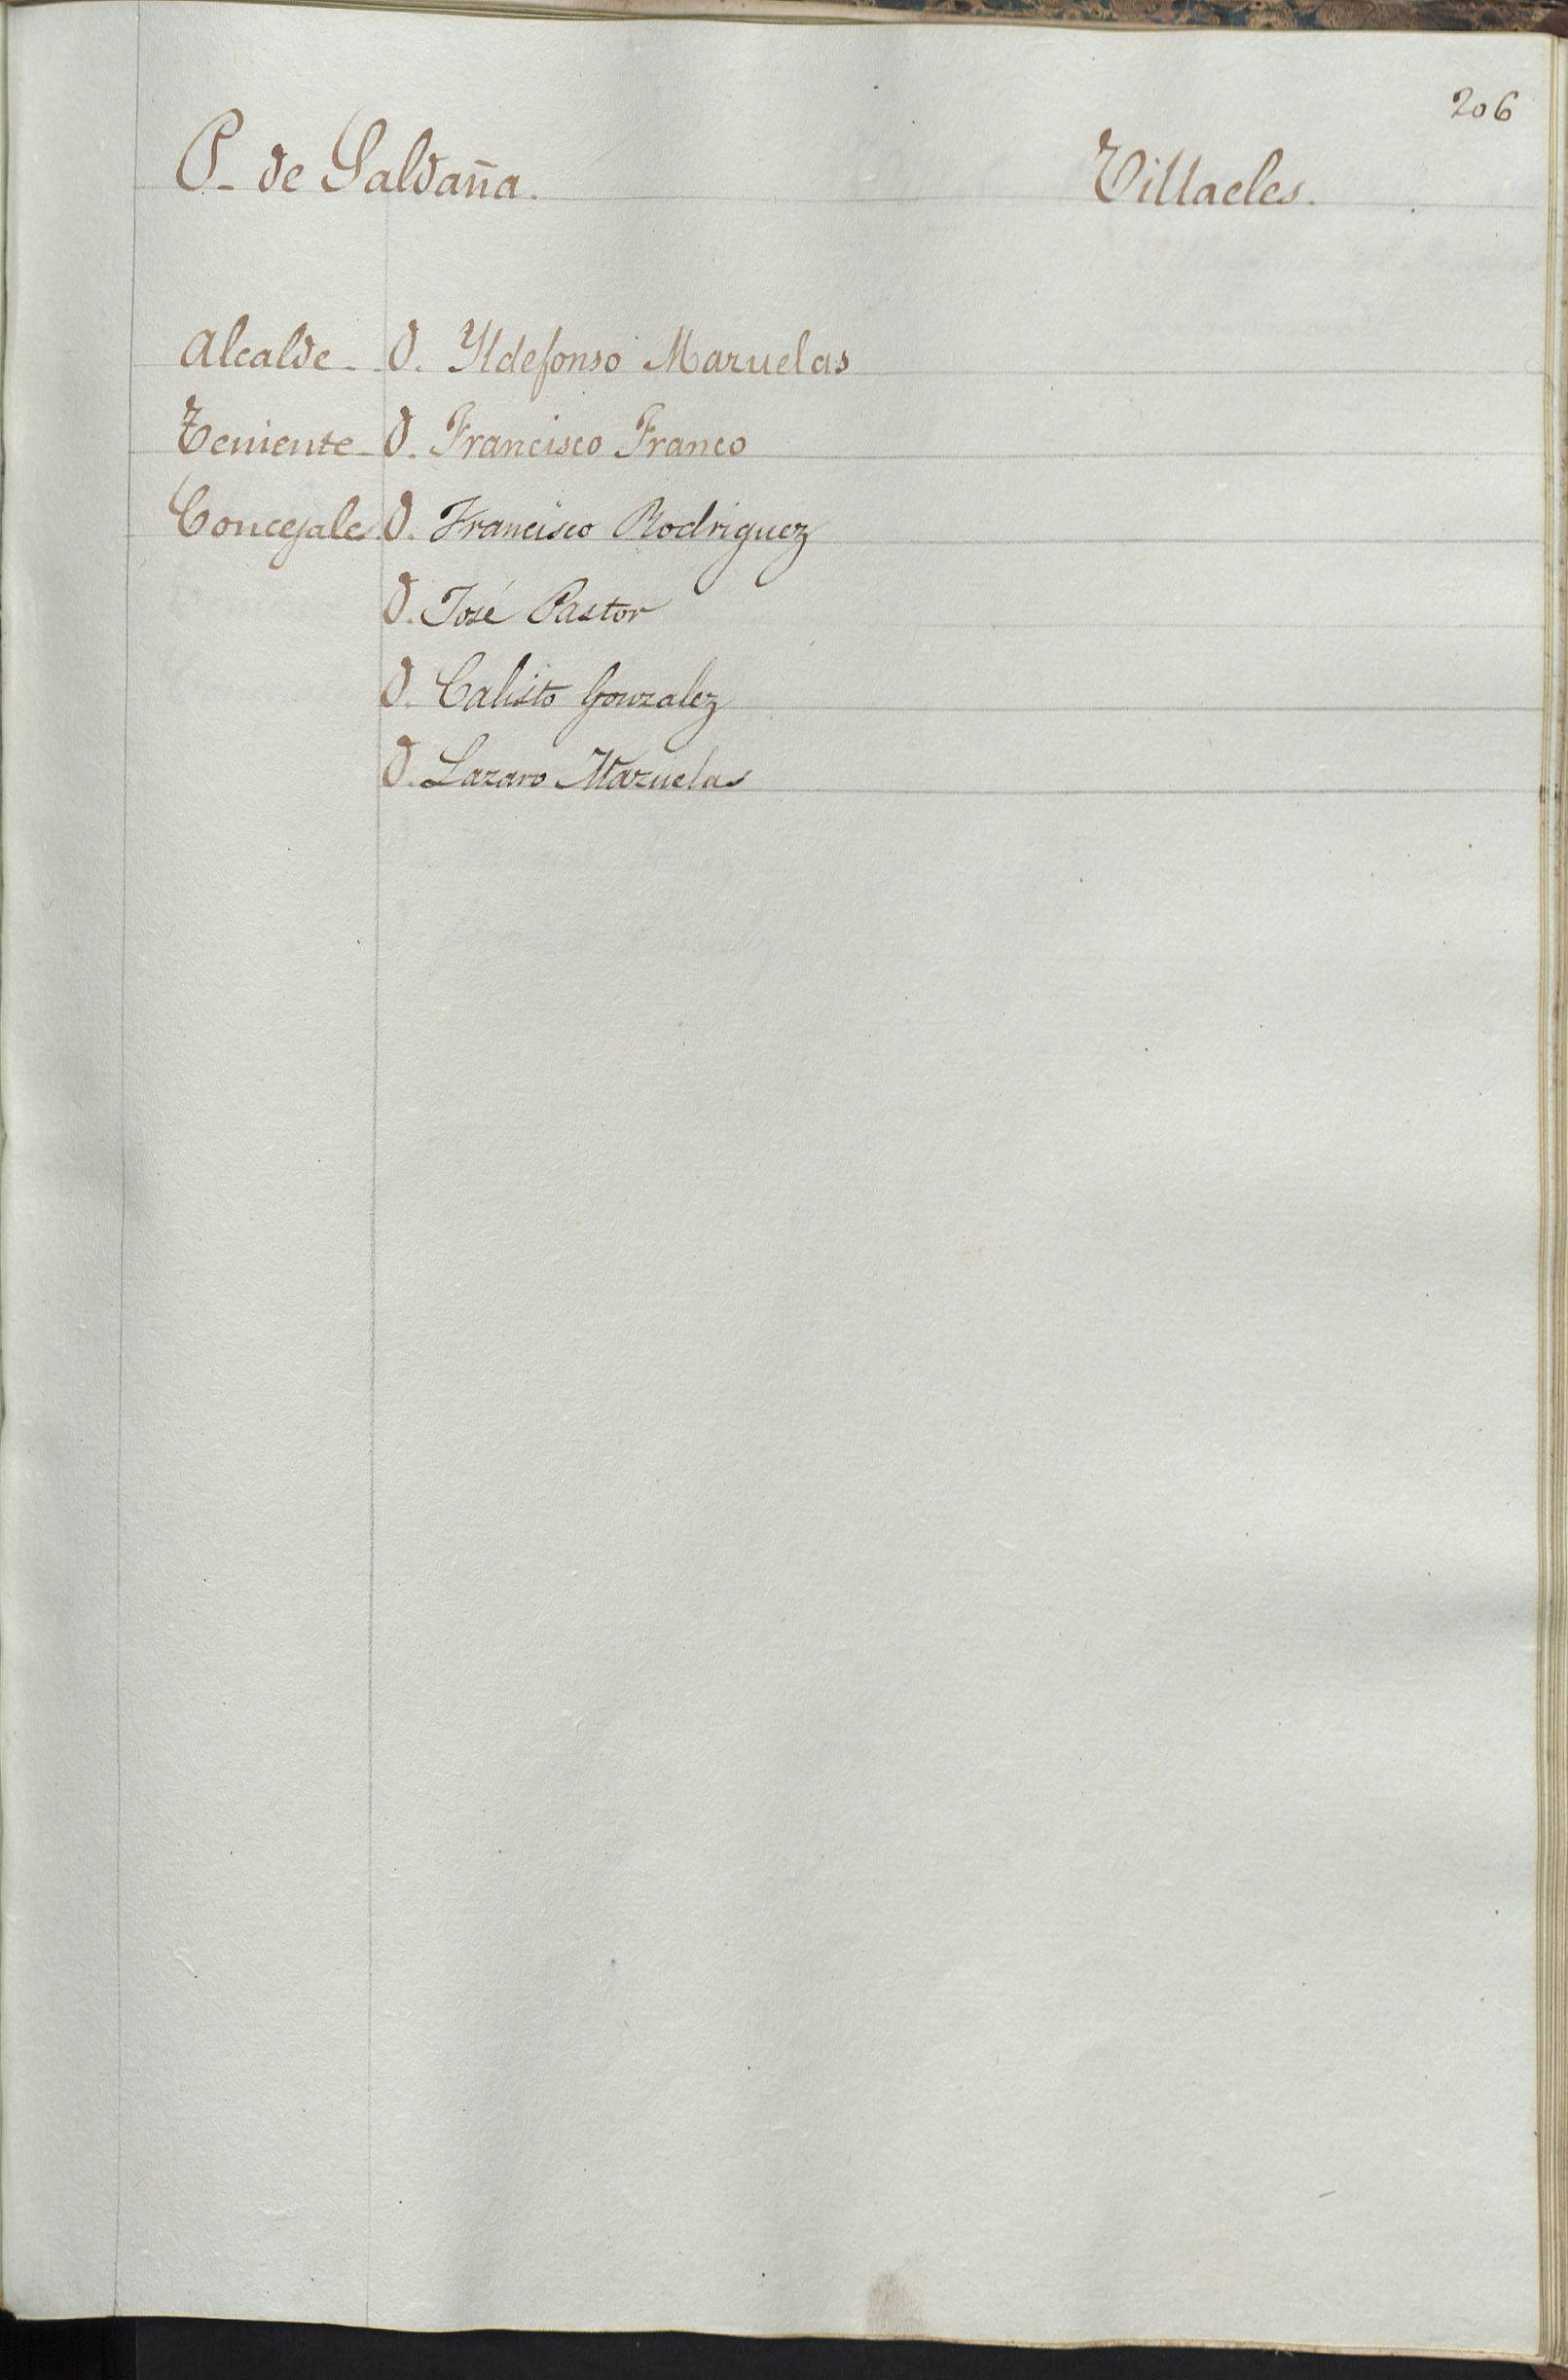 206
P. de Saldaña. Villaeles.
Alcalde. D. Yldefonso Mazuelas
Teniente D. Francisco Franco
Concejales D. Francisco Rodriguez
D. José Pastor
D. Calisto Gonzalez
D. Lazaro Mazuelas